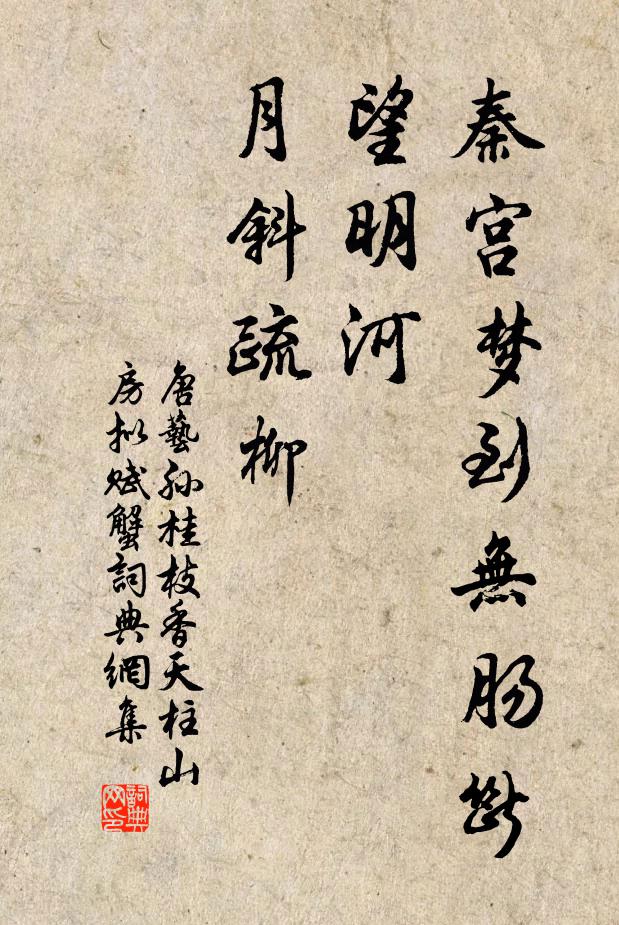 秦宫梦到無肠断
望明河
月斜疏柳
唐藝孙桂枝香天柱山
房拟赋蟹詞典網集
詞典
网印